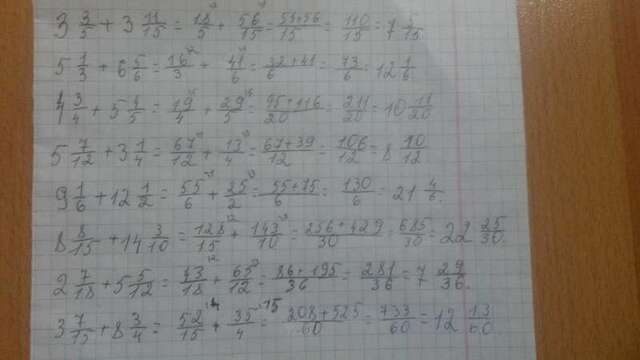 3 3/5 + 3 11/15 = 18/5 + 56/15 = 54+56/15 = 110/15 = 7 5/15
5 1/3 + 6 5/6 = 16/3 + 41/6 = 32+41/6 = 73/6 = 12 1/6
4 3/4 + 5 4/5 = 19/4 + 29/5 = 95+116/20 = 211/20 = 10 11/20
5 7/12 + 3 1/4 = 67/12 + 13/4 = 67+39/12 = 106/12 = 8 10/12
9 1/6 + 12 1/2 = 55/6 + 25/2 = 55+75/6 = 130/6 = 21 4/6
8 8/15 + 14 3/10 = 128/15 + 143/10 = 256+429/30 = 685/30 = 22 25/30
2 7/18 + 5 5/12 = 43/18 + 65/12 = 86+195/36 = 281/36 = 7 29/36
3 7/15 + 8 3/4 = 52/15 + 35/4 = 208+525/60 = 733/60 = 12 13/60